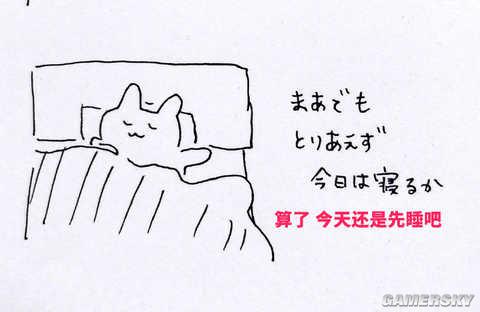 まあでも
とりあえず
今日は寝るか
算了 今天还是先睡吧
GAMERSKY